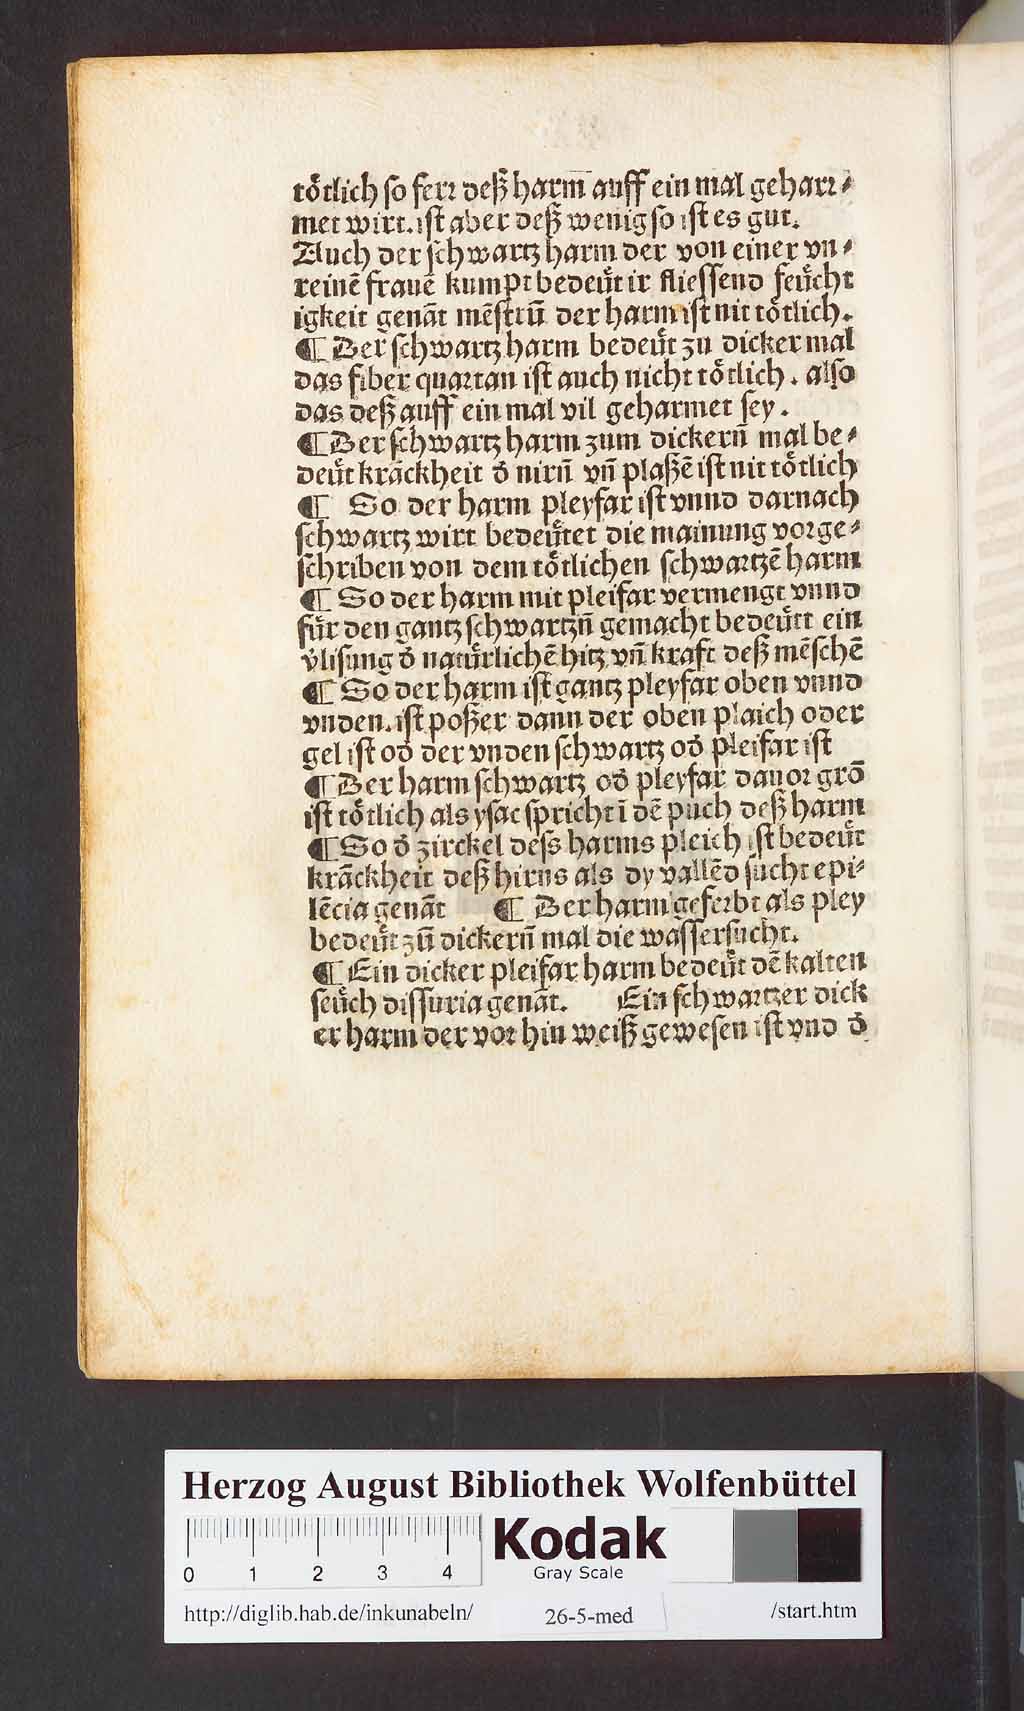 toͤtlich so ferr deß harm̄ auff ein mal geharr⸗
met wirt. ist aber deß wenig so ist es gut.
Auch der schwartz harm der von einer vn⸗
reinē frauē kumpt bedeuͤt ir fliessend feuͤcht
igkeit genāt mēstruū der harm ist nit toͤtlich.
¶ Der schwartz harm bedeuͤt zu dicker mal
das fiber quartan ist auch nicht toͤtlich. also
das deß auff ein mal vil geharmet sey.
¶ Der schwartz harm zum dickern̄ mal be⸗
deuͤt krāckheit ď nirn̄ vn̄ plaßē ist nit toͤtlich
¶ So der harm pleyfar ist vnnd darnach
schwartz wirt bedeuͤtet die mainung vorge⸗
schriben von dem toͤtlichen schwartzē harm
¶ So der harm mit pleifar vermengt vnnd
fuͤr den gantz schwartzn̄ gemacht bedeuͤtt ein
v̓lisung ď natuͤrlichē hitz vn̄ kraft deß mēschē
¶ So der harm ist gantz pleyfar oben vnnd
vnden. ist poßer dann der oben plaich oder
gel ist oď der vnden schwartz oď pleifar ist
¶ Der harm schwartz oď pleyfar dauor grō
ist toͤtlich als ysac spricht ī dē puch deß harm
¶ So ď zirckel dess harms pleich ist bedeuͤt
krāckheit deß hirns als dy vallēd sucht epi⸗
lēcia genāt ¶ Der harm geferbt als pley
bedeuͤt zū dickern̄ mal die wassersucht.
¶ Ein dicker pleifar harm bedeuͤt dē kalten
seuͤch dissuria genāt. Ein schwartzer dick
er harm der vor hin weiß gewesen ist vnd ď
Herzog August Bibliothek Wolfenbüttel
0 1 2 3 4
Kodak
Gray Scale
http://diglib.hab.de/inkunabeln/ 26-5-med /start.htm